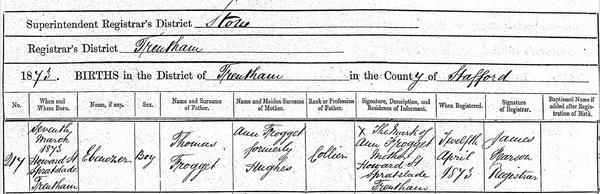 Superintendent Registrar's District Stone
Registrar's District Trentham
1873. BIRTHS in the District of Trentham in the County of Stafford
No. When and Where Born. Name, if any. Sex. Name and Surname of Father. Name and Maiden Surname of Mother. Rank or Profession of Father. Signature, Description, and Residence of Informant. When Registered. Signature of Registrar. Baptismal Name if added after Registration of Birth.
217 Seventh March 1873 Howard St Spratslade Trentham
Ebenezer
Boy
Thomas Frogget
Ann Frogget formerly Hughes
Collier
X The Mark of Ann Frogget Mother Howard St Spratslade Trentham
Twelfth April 1873
James Registrar